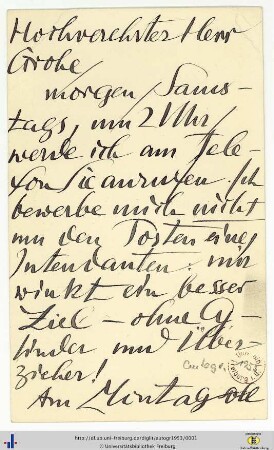 Hochverehrter Herr
Grohe
morgen Sams-
tags, um 2 Uhr
werde ich am Tele-
fon Sie anrufen. Ich
bewerbe mich nicht
um den Posten eines
Intendanten: mir
winkt ein besser
Ziel – ohne Cy-
linder und Über-
zieher!
Am Montag
http://dl.ub.uni-freiburg.de/diglit/autogr1953/0001
© Universitätsbibliothek Freiburg